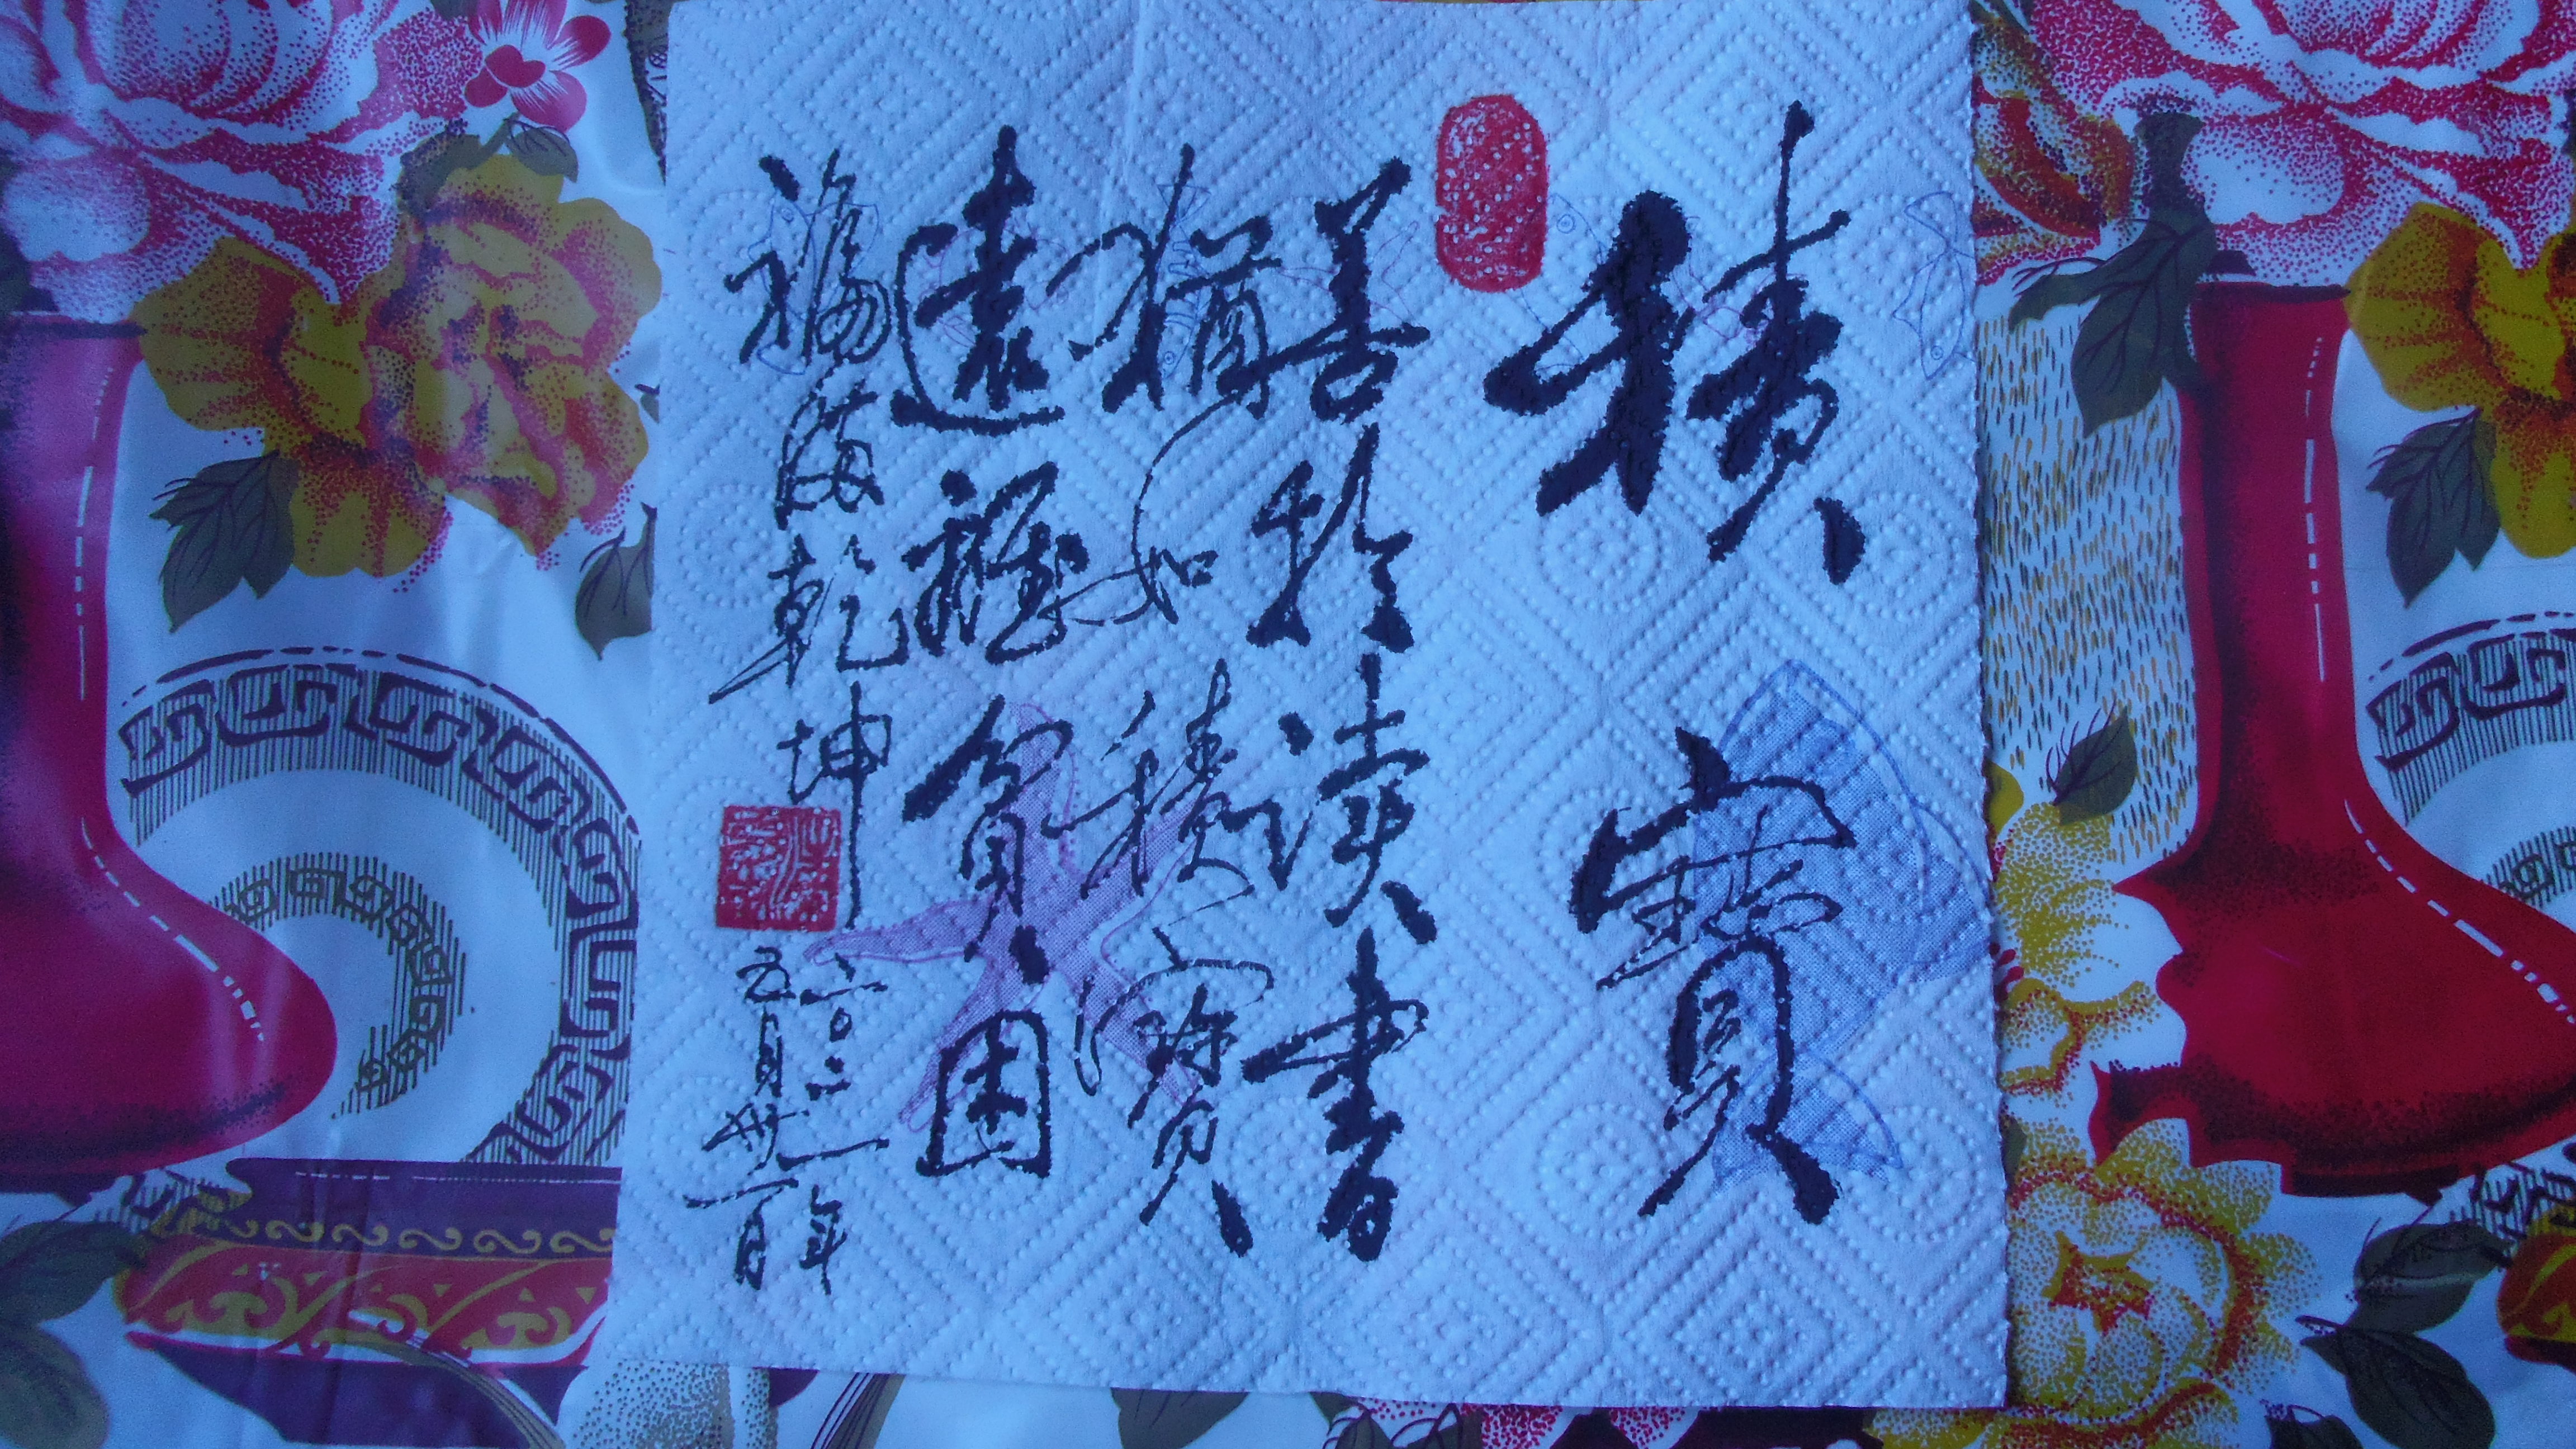 積寶
善於读書
猶如積寶
遠離貧困
福海乾坤
二〇二一年
五月卅一日